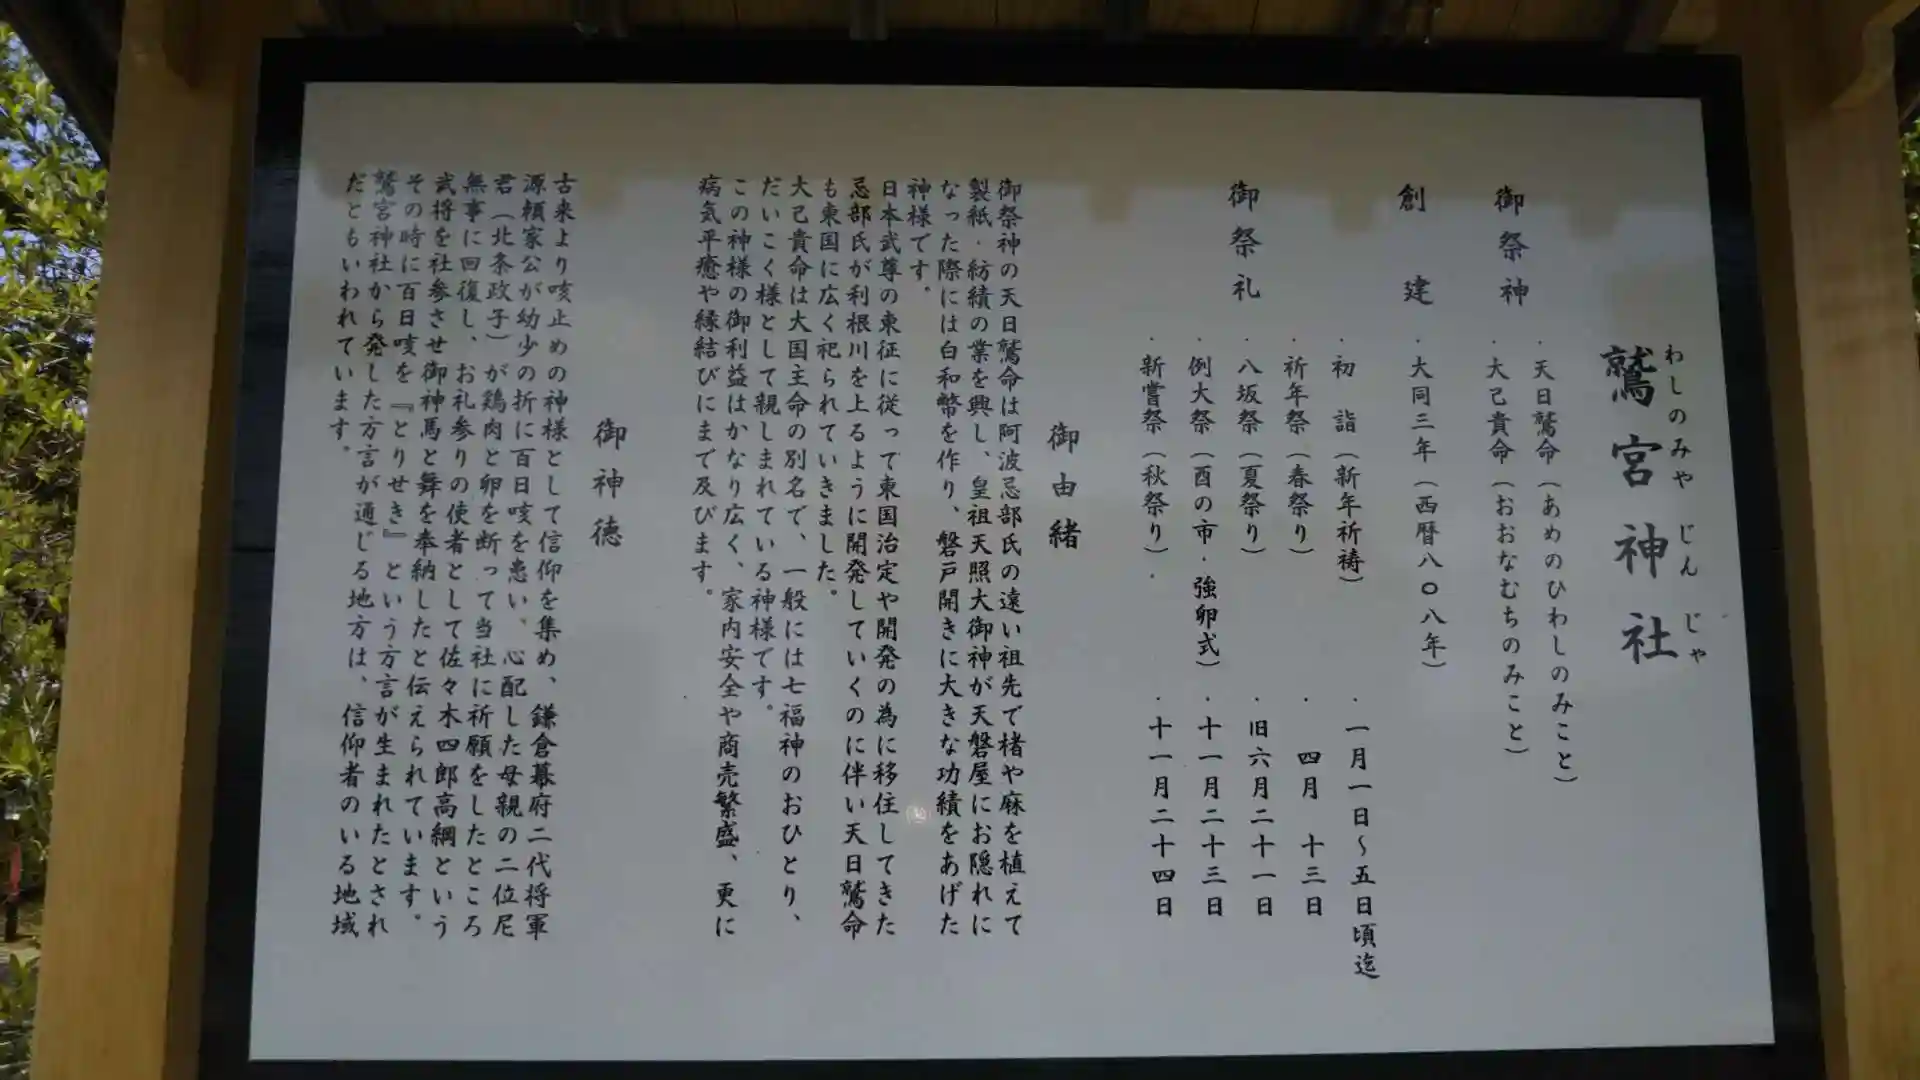 鷲宮神社
わしのみやじんじゃ
御祭神
・天日鷲命（あめのひわしのみこと）
・大己貴命（おおなむちのみこと）
創建
・大同三年（西暦八〇八年）
御祭礼
・初詣（新年祈祷）・一月一日～五日頃迄
・祈年祭（春祭り）・四月十三日
・八坂祭（夏祭り）・旧六月二十一日
・例大祭（酉の市・強卵式）・十一月二十三日
・新嘗祭（秋祭り）・十一月二十四日
御由緒
御祭神の天日鷲命は阿波忌部氏の遠い祖先で楮や麻を植えて
製紙・紡績の業を興し、皇祖天照大御神が天磐屋にお隠れに
なった際には白和幣を作り、磐戸開きに大きな功績をあげた
神様です。
日本武尊の東征に従って東国治定や開発の為に移住してきた
忌部氏が利根川を上るように開発していくのに伴い天日鷲命
も東国に広く祀られていきました。
大己貴命は大国主命の別名で、一般には七福神のおひとり、
だいこく様として親しまれている神様です。
この神様の御利益はかなり広く、家内安全や商売繁盛、更に
病気平癒や縁結びにまで及びます。
御神徳
古来より咳止めの神様として信仰を集め、鎌倉幕府二代将軍
源頼家公が幼少の折に百日咳を患い、心配した母親の二位尼
君（北条政子）が鶏肉と卵を断って当社に祈願をしたところ
無事に回復し、お礼参りの使者として佐々木四郎高綱という
武将を社参させ御神馬と舞を奉納したと伝えられています。
その時に百日咳を『とりせき』という方言が生まれたとされ
鷲宮神社から発した方言が通じる地方は、信仰者のいる地域
だともいわれています。